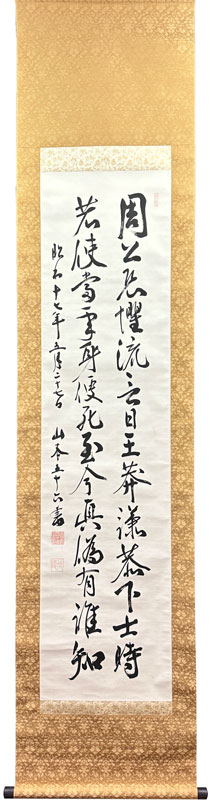 周公恐懼流言日王莽謙恭下士時
若使當年身便死至今眞偽有誰知
昭和十七年五月二十七日 山本五十六書